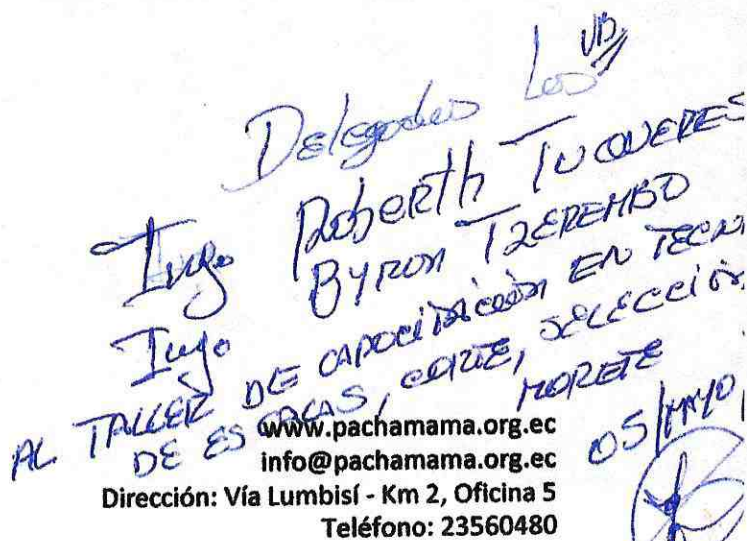 Delegados Los
Ingo Roberth TUQUERES
Ingo BYRON TZEREMBO
AL TALLER DE CAPACITACIÓN EN TECNI
DE ESCALAS, CORTE, SELECCIÓN
MORETE
05/MAYO/
www.pachamama.org.ec
info@pachamama.org.ec
Dirección: Vía Lumbisí - Km 2, Oficina 5
Teléfono: 23560480